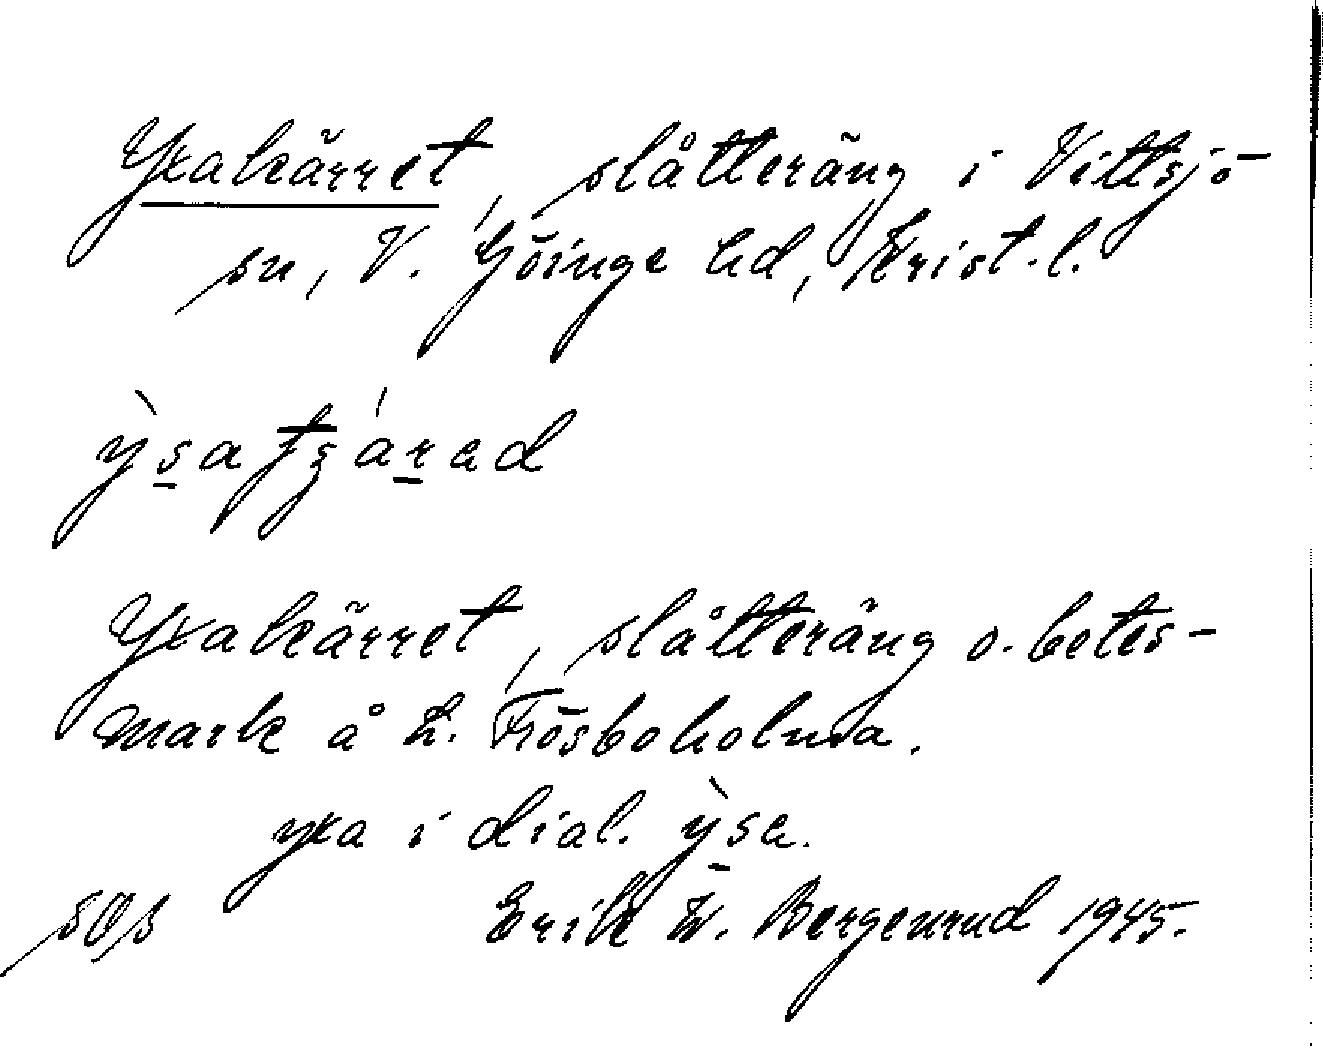 Yxakärret, slåtteräng i Vittsjö
sn, V. Göinge hd, Krist. l.
ỳsatʒárad
Yxakärret, slåtteräng o. betes-
mark å L. Frösboholma.
yxa i dial. ỳsa.
Erik W. Bergenrud 1945.